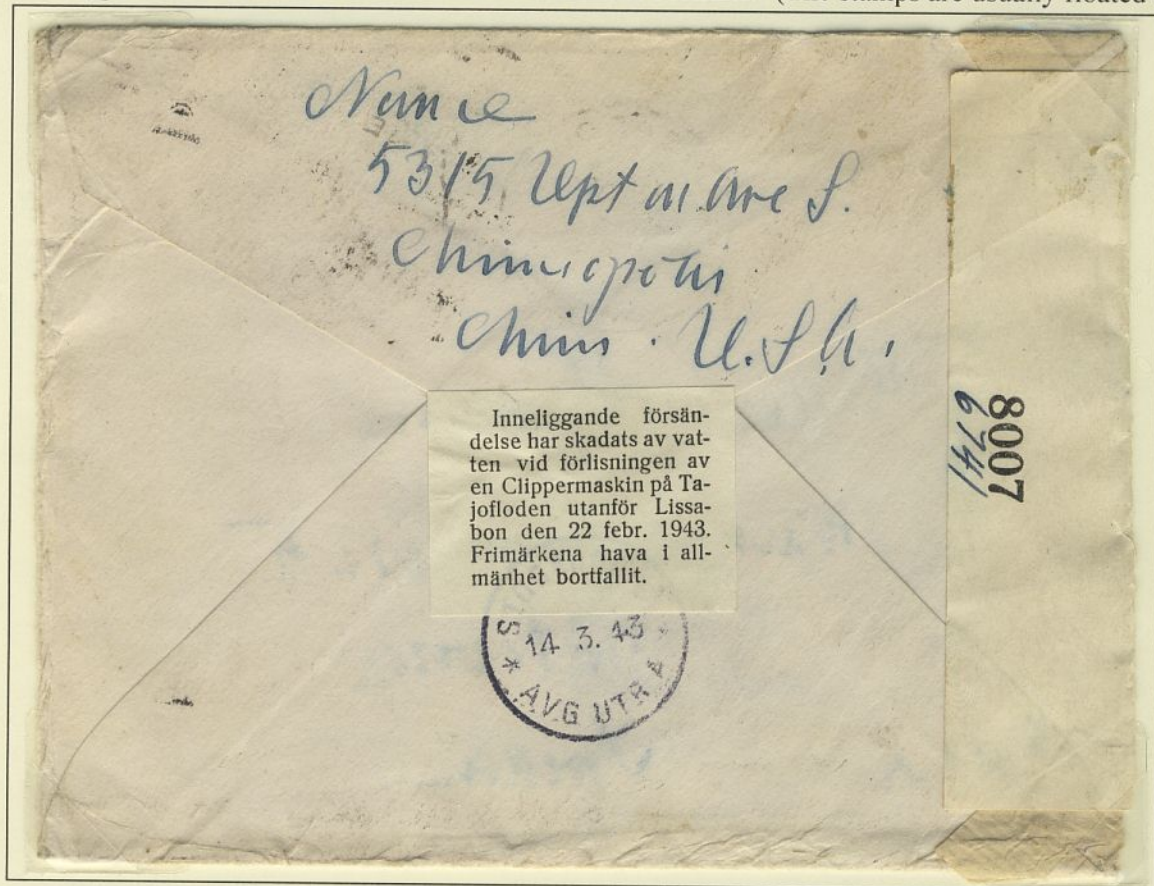 (... stamps are usually floated
Nunce
5315 Upton Ave S.
Minneapolis
Minn. U.S.A.
8007
6741
Inneliggande försän-
delse har skadats av vat-
ten vid förlisningen av
en Clippermaskin på Ta-
jofloden utanför Lissa-
bon den 22 febr. 1943.
Frimärkena hava i all-
mänhet bortfallit.
14. 3. 43
* AVG UTR